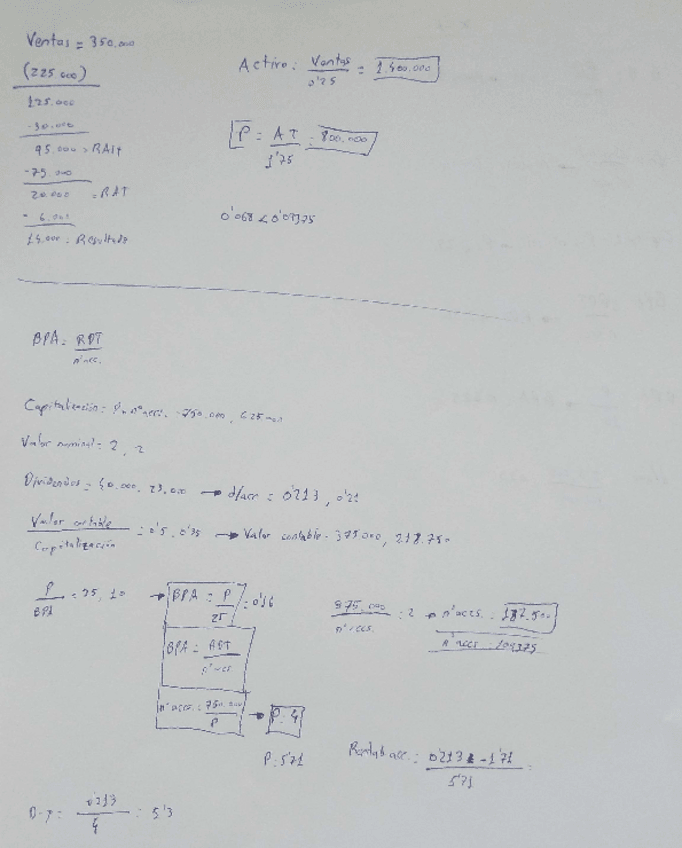 Ventas = 350.000
(225.000)
125.000
-30.000
95.000 = RAIT
-75.000
20.000 = RAT
- 6.000
14.000 = Resultado
Activo: Ventas / 0'25 = 1.400.000
P = AT / 1'75 = 800.000
0'068 < 0'09375
BPA = RDT / nº acc.
Capitalización = P. nº acc. = 750.000, 625.000
Valor nominal = 2, 2
Dividendos = 40.000, 23.000 → d/acc = 0'213, 0'21
Valor contable / Capitalización = 0'5, 0'35 → Valor contable = 375.000, 218.750
P / BPA = 25, 10 → BPA = P / 25 = 0'16
BPA = RDT / nº acc
nº acc. = 750.000 / P → P = 4
P = 5'71
375.000 / nº acc. = 2 → nº accs. = 187.500
nº accs = 109375
Rentab acc. = 0'213 - 1'71 / 5'71 =
0'213 / 4 = 5'3